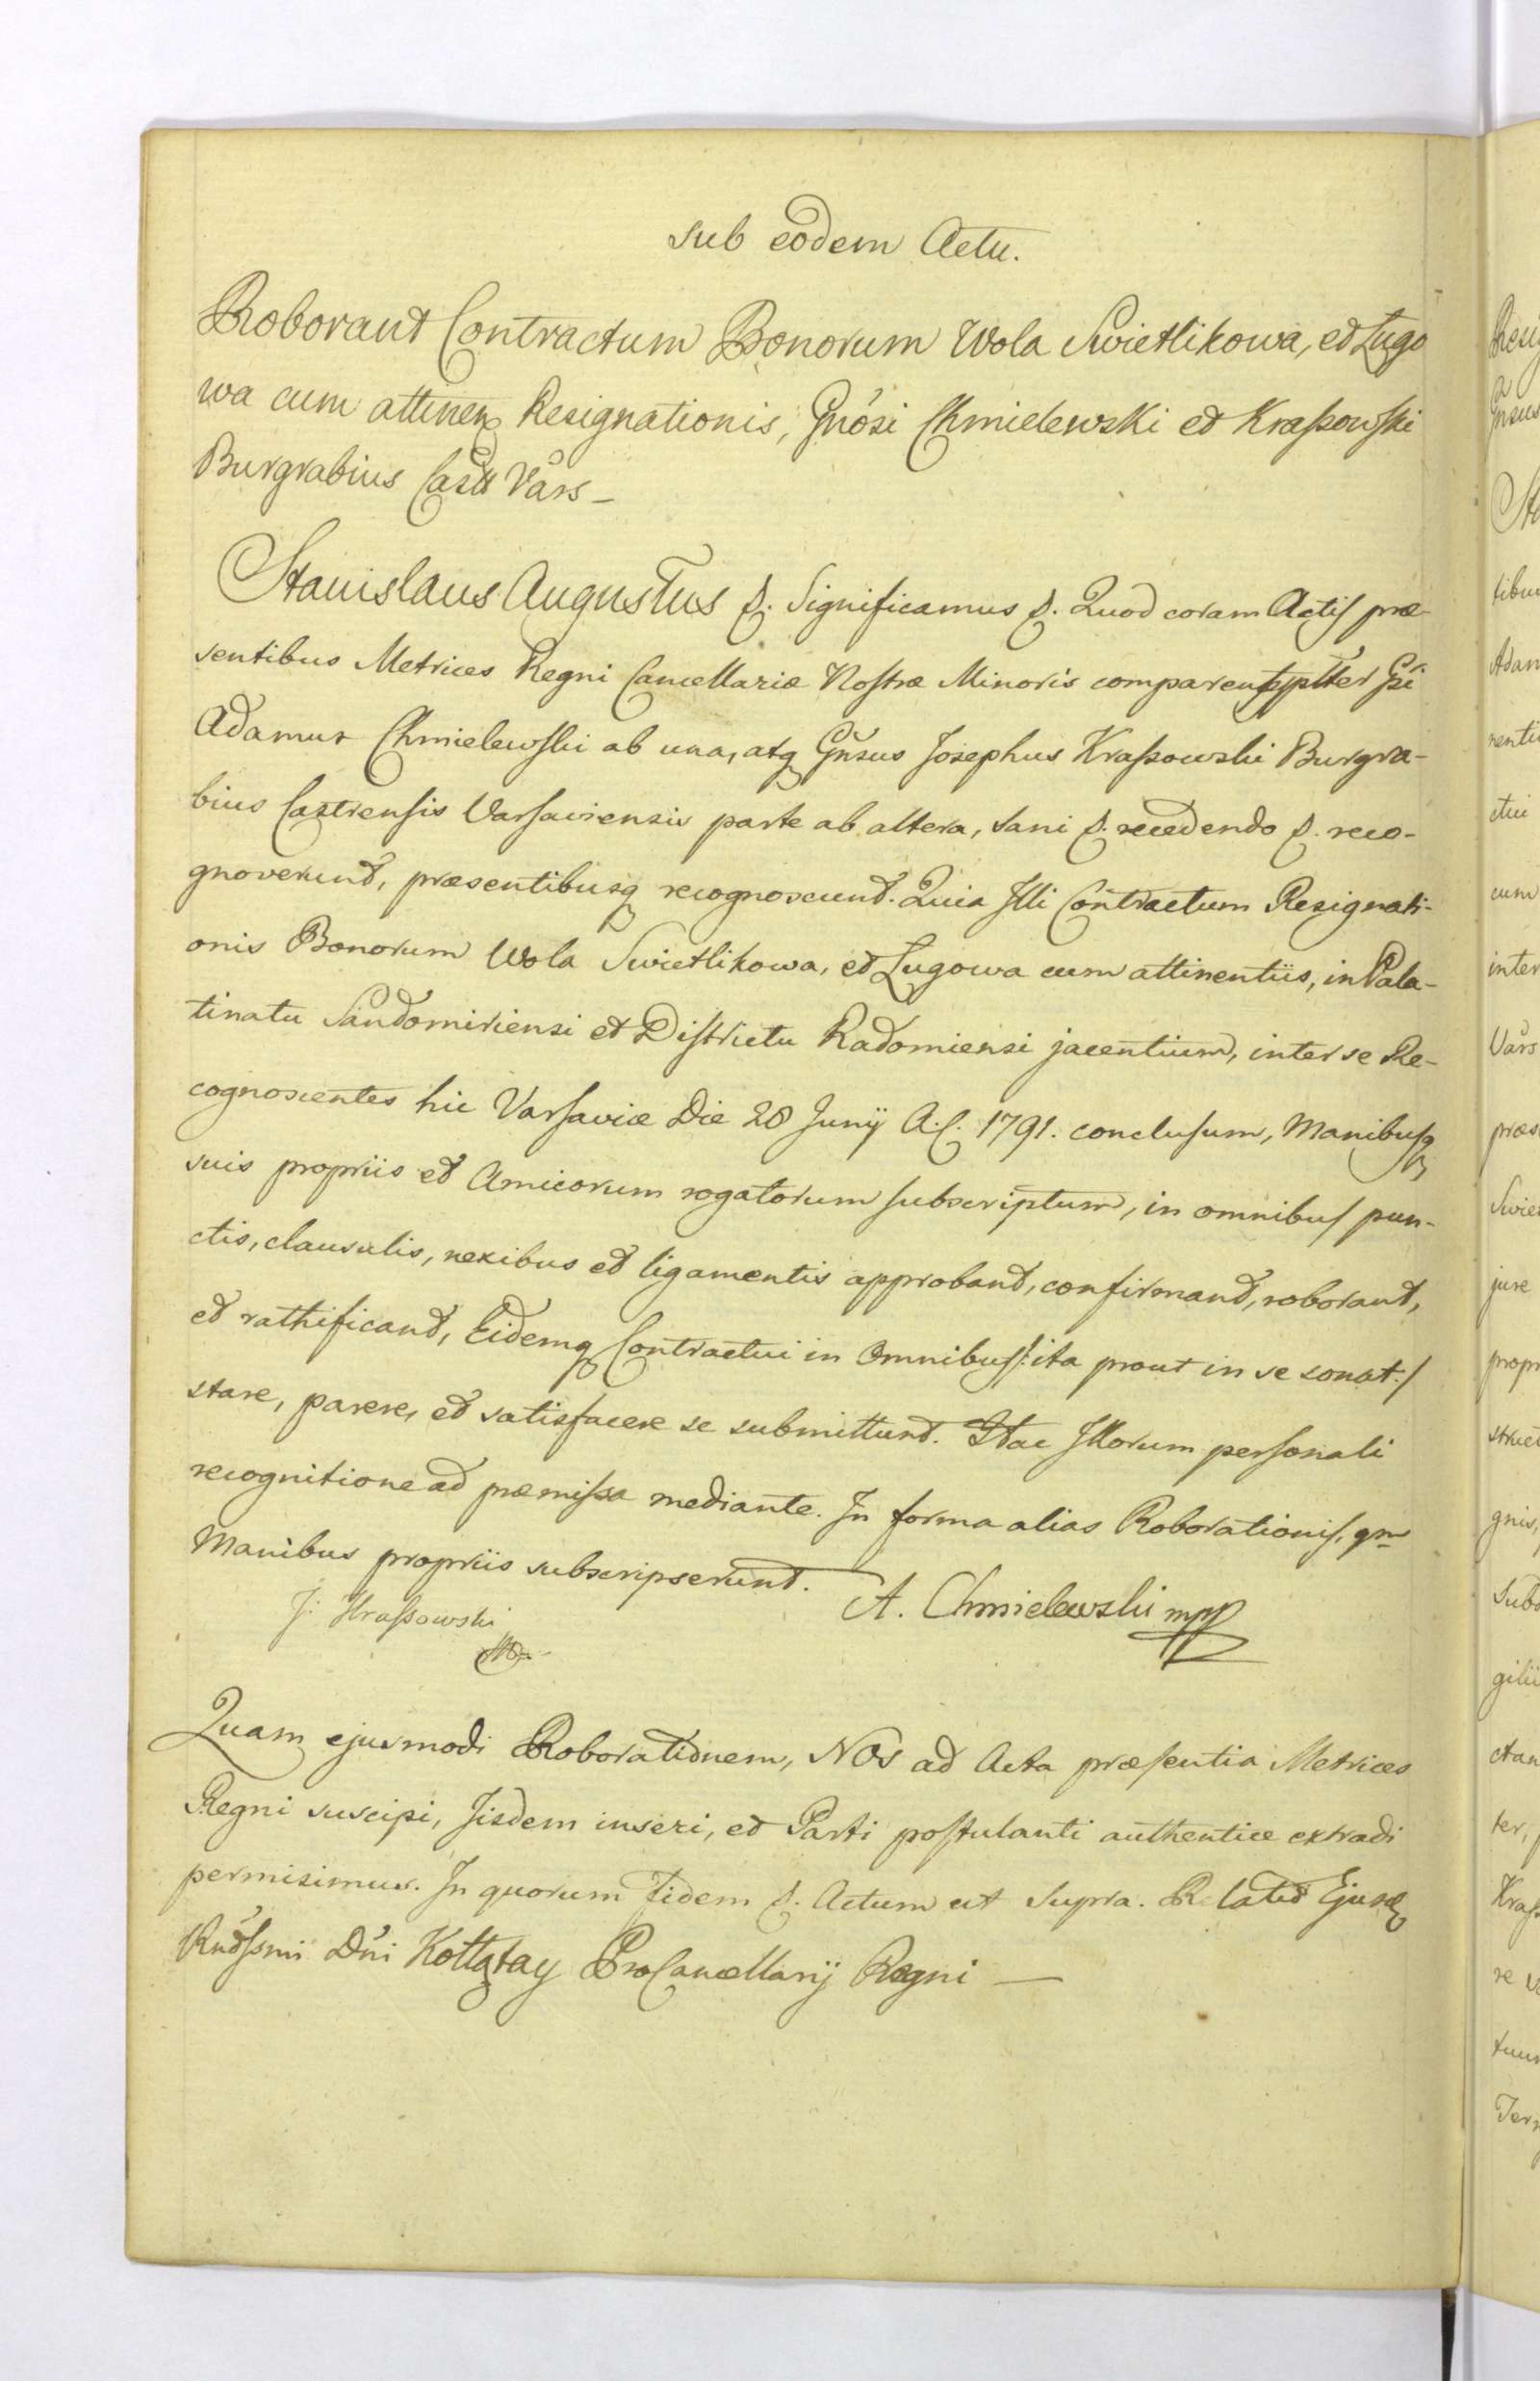 sub eodem Actu.
Roborant Contractum Bonorum Wola Swietlikowa, et Lugo
wa cum attinen Resignationis, Gnosi Chmielewski et Kraßowski
Burgrabius Cast Vars –
Stanislaus Augustus &. Significamus &. Quod coram Actis præ-
sentibus Metrices Regni Cancellariæ Nostræ Minoris comparen
Adamus Chmielewski ab una, atq Gnsus Josephus Kraßowski Burgra-
bius Castrensis Varsaviensis parte ab altera, sani &. recedendo &. reco-
gnoverunt, præsentibusq recognoscunt. Quia Illi Contractum Resignati-
onis Bonorum Wola Swietlikowa, et Lugowa cum attinentiis, in Pala-
tinatu Sandomiriensi et Districtu Radomiensi jacentium, inter se Re-
cognoscentes hic Varsaviæ Die 28 Junij A. C. 1791. conclusum, Manibusq
suis propriis et Amicorum rogatorum subscriptum, in omnibus pun-
ctis, clausulis, nexibus et ligamentis approbant, confirmant, roborant,
et rathificant, Eidemq Contractui in Omnibus /: ita prout in se sonat :/
stare, parere, et satisfacere se submittunt. Hac Illorum personali
recognitione ad præmissa mediante. In forma alias Roborationis, qm
Manibus propriis subscripserunt. A. Chmielewski mpp
J: Kraßowski
Quam ejusmodi Roborationem, Nos ad Acta præsentia Metrices
Regni suscipi, Iisdem inseri, et Parti postulanti authentice extradi
permisimus. In quorum Fidem &. Actum ut Supra. Relatio Ejusd
Rndssmi Dni Kołłątay ProCancellarij Regni —